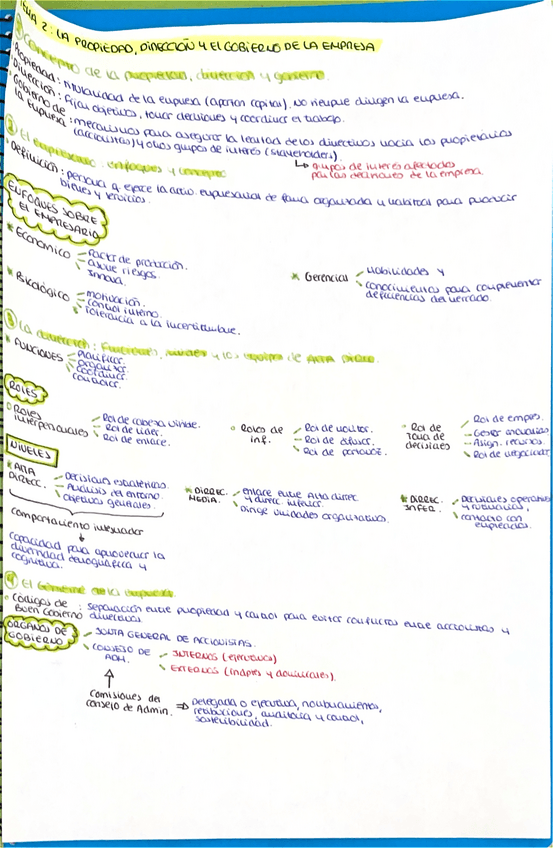 TEMA 2: LA PROPIEDAD, DIRECCIÓN Y EL GOBIERNO DE LA EMPRESA
① Concepto de la propiedad, dirección y gobierno.
• Propiedad: titularidad de la empresa (aportan capital), no siempre dirigen la empresa.
• Dirección: fijar objetivos, tomar decisiones y coordinar el trabajo.
• Gobierno de la empresa: mecanismos para asegurar la lealtad de los directivos hacia los propietarios
(accionistas) y otros grupos de interés (stakeholders).
↳ grupos de interés afectados
por las decisiones de la empresa.
② El empresario: enfoques y concepto
• Definición: persona q ejerce la activ. empresarial de forma organizada y habitual para producir
bienes y servicios.
ENFOQUES SOBRE
EL EMPRESARIO
* Económico
Factor de producción.
Asume riesgos.
Innova.
* Gerencial
Habilidades y
conocimientos para comprometer
deficiencias del mercado.
* Psicológico
motivación.
control interno.
Tolerancia a la incertidumbre.
③ La dirección: Funciones, niveles y los equipos de ALTA DIREC.
* FUNCIONES
Planificar.
organizar.
coordinar.
controlar.
ROLES
Roles interpersonales
Rol de cabeza visible.
Rol de líder.
Rol de enlace.
Roles de inf.
Rol de monitor.
Rol de difusor.
Rol de portavoz.
Rol de toma de decisiones
Rol de empres.
Gestor anomalías
Asign. recursos
Rol de negociador
NIVELES
* ALTA DIRECC.
Decisiones estratégicas.
Análisis del entorno.
Objetivos generales.
* DIREC. MEDIA.
enlace entre alta direcc.
y direcc. inferior.
Dirige unidades organizativas.
* DIREC. INFER.
Decisiones operativas
y rutinarias,
contacto con
empleados.
Comportamiento integrador
↓
capacidad para aprovechar la
diversidad demográfica y
cognitiva.
④ El Gobierno de la empresa
• Códigos de Buen Gobierno: separación entre propiedad y control para evitar conflictos entre accionistas y
directivos.
ÓRGANOS DE
GOBIERNO
JUNTA GENERAL DE ACCIONISTAS.
CONSEJO DE ADM.
INTERNOS (ejecutivos)
EXTERNOS (indptes y dominicales).
↑
Comisiones del
consejo de Admin. ⇒ Delegada o ejecutiva, nombramientos,
retribuciones, auditoría y control,
sostenibilidad.